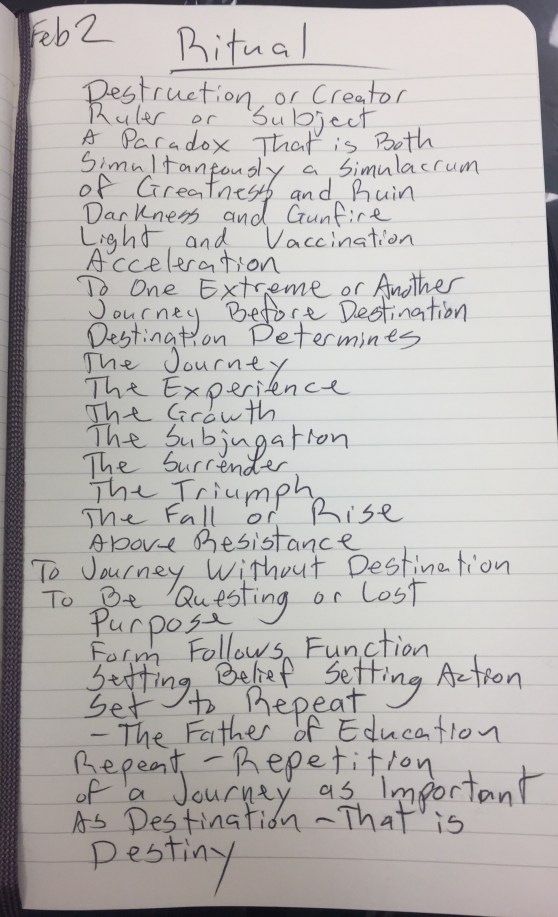 Feb 2
Ritual
Destruction or Creator
Ruler or Subject
A Paradox That is Both
Simultaneously a Simulacrum
of Greatness and Ruin
Darkness and Gunfire
Light and Vaccination
Acceleration
To One Extreme or Another
Journey Before Destination
Destination Determines
The Journey
The Experience
The Growth
The Subjugation
The Surrender
The Triumph
The Fall or Rise
Above Resistance
To Journey Without Destination
To Be Questing or Lost
Purpose
Form Follows Function
Setting Belief Setting Action
Set to Repeat
- The Father of Education
Repeat - Repetition
of a Journey as Important
As Destination - That is
Destiny